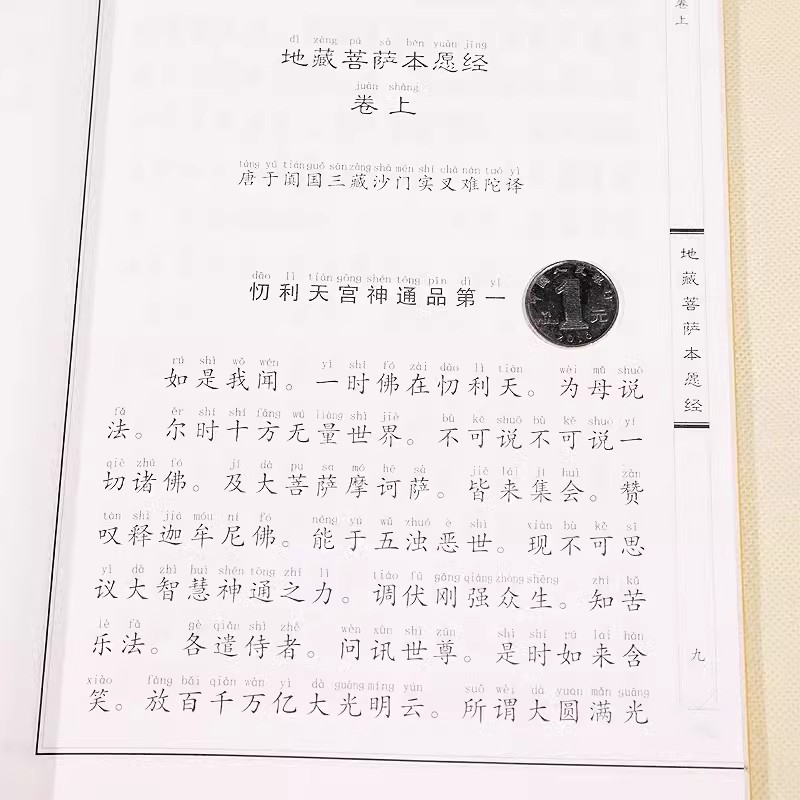 dì zàng pú sà běn yuàn jīng
地藏菩萨本愿经
juàn shàng
卷上
táng yú tián guó sān zàng shā mén shí chā nán tuó yì
唐于阗国三藏沙门实叉难陀译
dāo lì tiān gōng shén tōng pǐn dì yī
忉利天宫神通品第一
1
元
rú shì wǒ wén yì shí fó zài dāo lì tiān wèi mǔ shuō
如是我闻。一时佛在忉利天。为母说
fǎ ěr shí shí fāng wú liàng shì jiè bù kě shuō bù kě shuō yí
法。尔时十方无量世界。不可说不可说一
qiè zhū fó jí dà pú sà mó hē sà jiē lái jí huì zàn
切诸佛。及大菩萨摩诃萨。皆来集会。赞
tàn shì jiā móu ní fó néng yú wǔ zhuó è shì xiàn bù kě sī
叹释迦牟尼佛。能于五浊恶世。现不可思
yì dà zhì huì shén tōng zhī lì tiáo fú gāng qiáng zhòng shēng zhī kǔ
议大智慧神通之力。调伏刚强众生。知苦
lè fǎ gè qiǎn shì zhě wèn xùn shì zūn shì shí rú lái hán
乐法。各遣侍者。问讯世尊。是时如来含
xiào fàng bǎi qiān wàn yì dà guāng míng yún suǒ wèi dà yuán mǎn guāng
笑。放百千万亿大光明云。所谓大圆满光
卷上
地藏菩萨本愿经
九